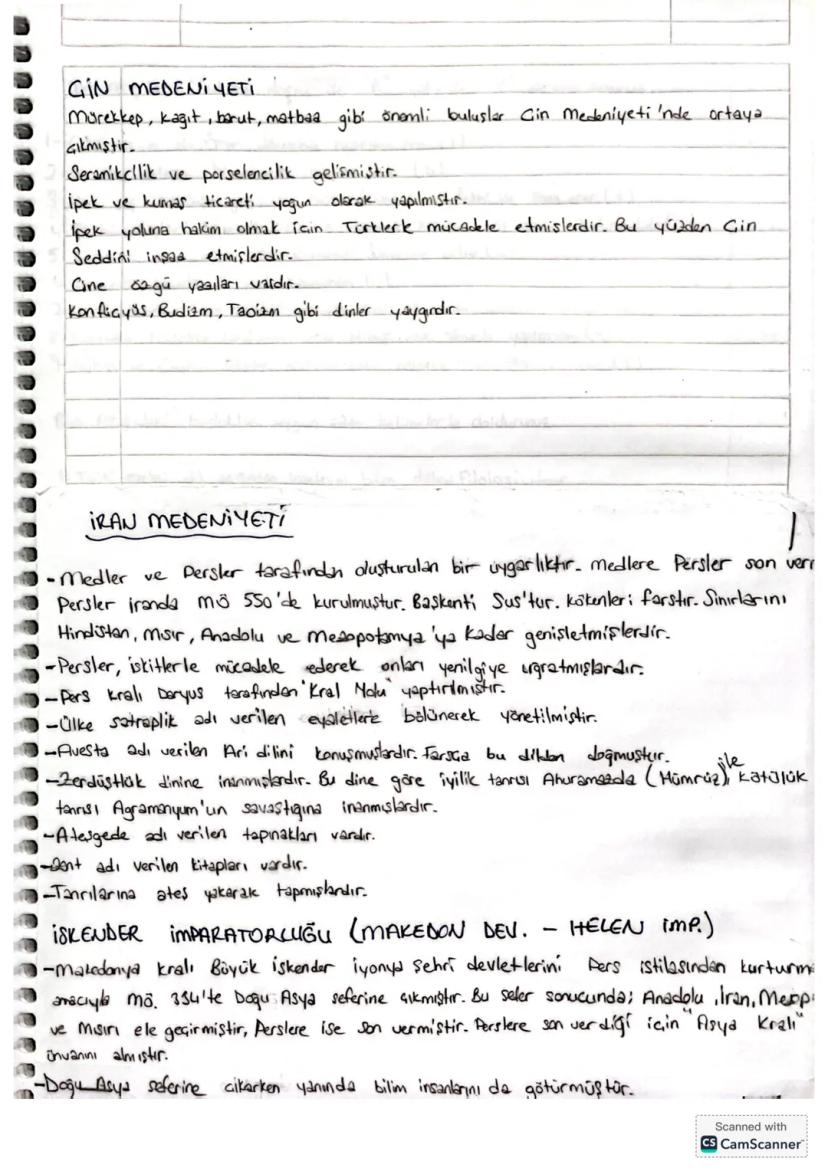 ÇİN MEDENİYETİ
Mürekkep, kağıt, barut, matbaa gibi önemli buluşlar Çin Medeniyeti'nde ortaya
çıkmıştır.
Seramikcilik ve porselencilik gelişmiştir.
İpek ve kumaş ticareti yoğun olarak yapılmıştır.
İpek yoluna hakim olmak için Türklerle mücadele etmişlerdir. Bu yüzden Çin
Seddini inşaa etmişlerdir.
Çine özgü yazıları vardır.
Konfüçyüs, Budizm, Taoizm gibi dinler yaygındır.
İRAN MEDENİYETİ
- Medler ve Persler tarafından oluşturulan bir uygarlıktır. Medlere Persler son
Persler İranda MÖ 550'de kurulmuştur. Başkenti Sus'tur. Kökenleri farstır. Sınırlarını
Hindistan, Mısır, Anadolu ve Mezopotamya'ya kadar genişletmişlerdir.
- Persler, iskitlerle mücadele ederek onları yenilgiye uğratmışlardır.
- Pers kralı Daryus tarafından "Kral Yolu" yaptırılmıştır.
- Ülke satraplik adı verilen eyaletlere bölünerek yönetilmiştir.
- Avesta adı verilen Ari dilini konuşmuşlardır. Farsça bu dilden doğmuştur.
- Zerdüştlük dinine inanmışlardır. Bu dine göre iyilik tanrısı Ahuramazda (Hümrüz) ile kötülük
tanrısı Agramanyum'un savaştığına inanmışlardır.
- Ateşgede adı verilen tapınakları vardır.
- adı verilen kitapları vardır.
- Tanrılarına ateş yakarak tapmışlardır.
İSKENDER İMPARATORLUĞU (MAKEDON DEV. - HELEN İMP.)
- Makedonya kralı Büyük İskender İyonya Şehri devletlerini Pers istilasından kurturm
amacıyla MÖ. 334'te Doğu Asya seferine çıkmıştır. Bu sefer sonucunda; Anadolu, İran, Mezop
ve Mısırı ele geçirmiştir, Perslere ise son vermiştir. Perslere son verdiği için "Asya Kralı"
ünvanını almıştır.
- Doğu Asya seferine çıkarken yanında bilim insanlarını da götürmüştür.
Scanned with
CS CamScanner